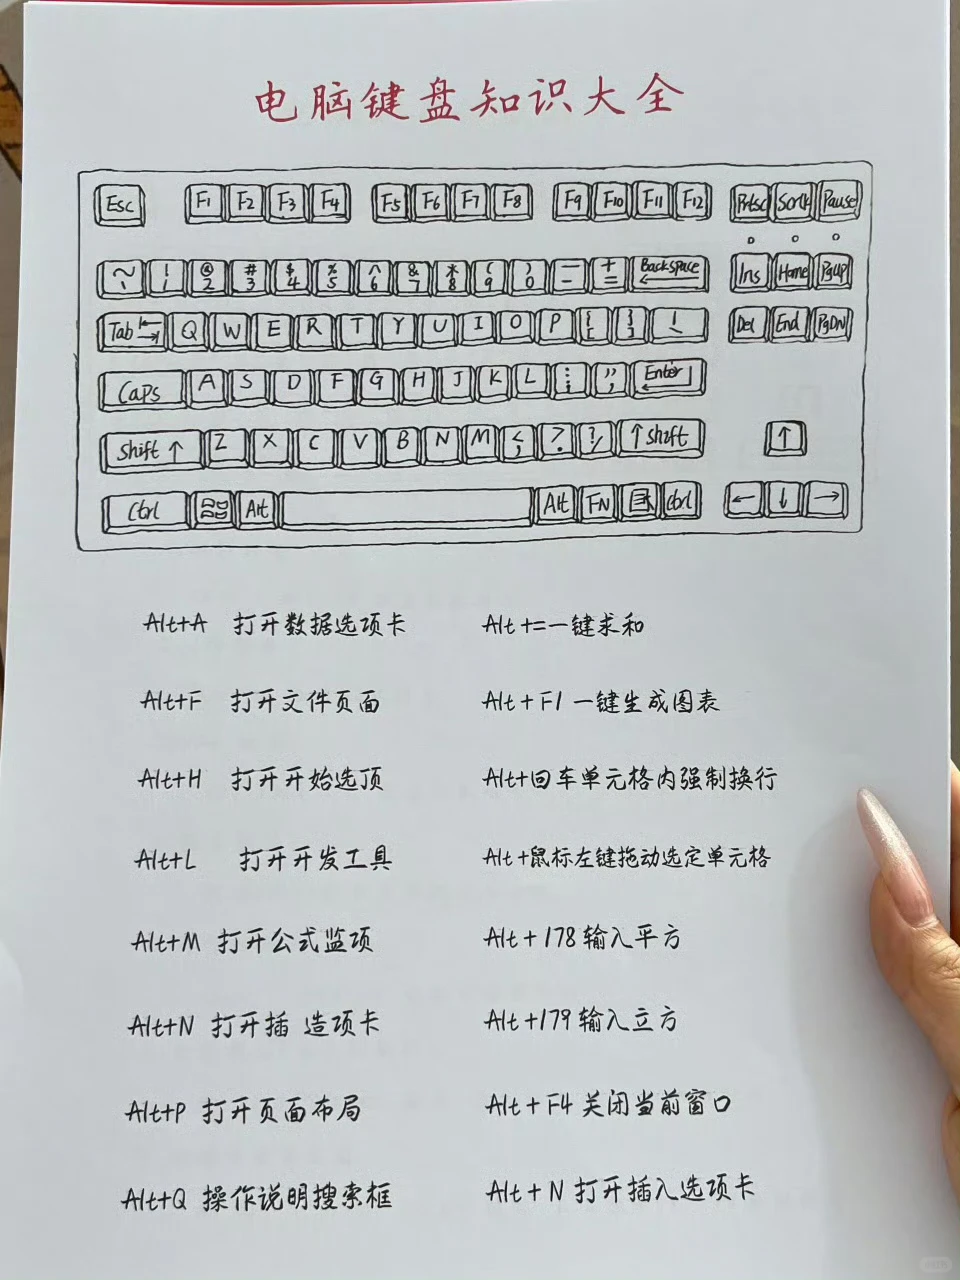 电脑键盘知识大全
Esc F1 F2 F3 F4 F5 F6 F7 F8 F9 F10 F11 F12 Prtsc Scrlk Pause
~ ` ! 1 @ 2 # 3 $ 4 % 5 ^ 6 & 7 * 8 ( 9 ) 0 — - + = Backspace Ins Home PgUp
Tab Q W E R T Y U I O P { [ } ] | \ Del End PgDN
Caps A S D F G H J K L : ; " ' Enter
Shift ↑ Z X C V B N M < , ? . ! / ↑ Shift ↑
Ctrl Alt Alt FN Ctrl ← ↓ →
Alt+A 打开数据选项卡
Alt+=一键求和
Alt+F 打开文件页面
Alt+F1 一键生成图表
Alt+H 打开开始选顶
Alt+回车单元格内强制换行
Alt+L 打开开发工具
Alt+鼠标左键拖动选定单元格
Alt+M 打开公式监项
Alt+178输入平方
Alt+N 打开插 造项卡
Alt+179输入立方
Alt+P 打开页面布局
Alt+F4关闭当前窗口
Alt+Q 操作说明搜索框
Alt+N打开插入选项卡